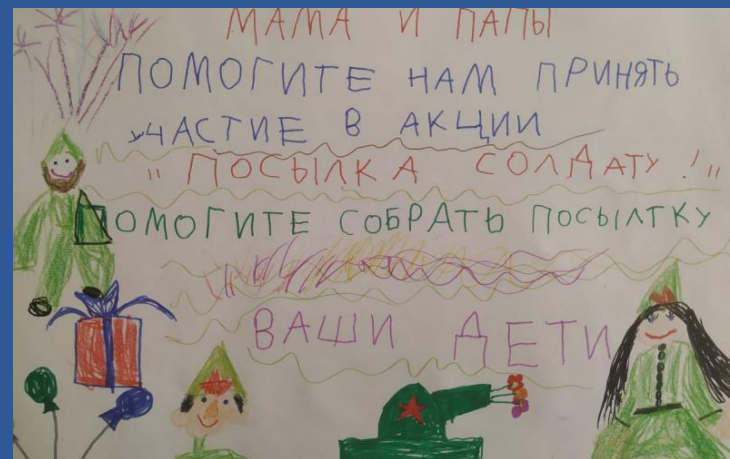 МАМА И ПАПЫ
ПОМОГИТЕ НАМ ПРИНЯТЬ
УЧАСТИЕ В АКЦИИ
"ПОСЫЛКА СОЛДАТУ!"
ПОМОГИТЕ СОБРАТЬ ПОСЫЛТКУ
ВАШИ ДЕТИ